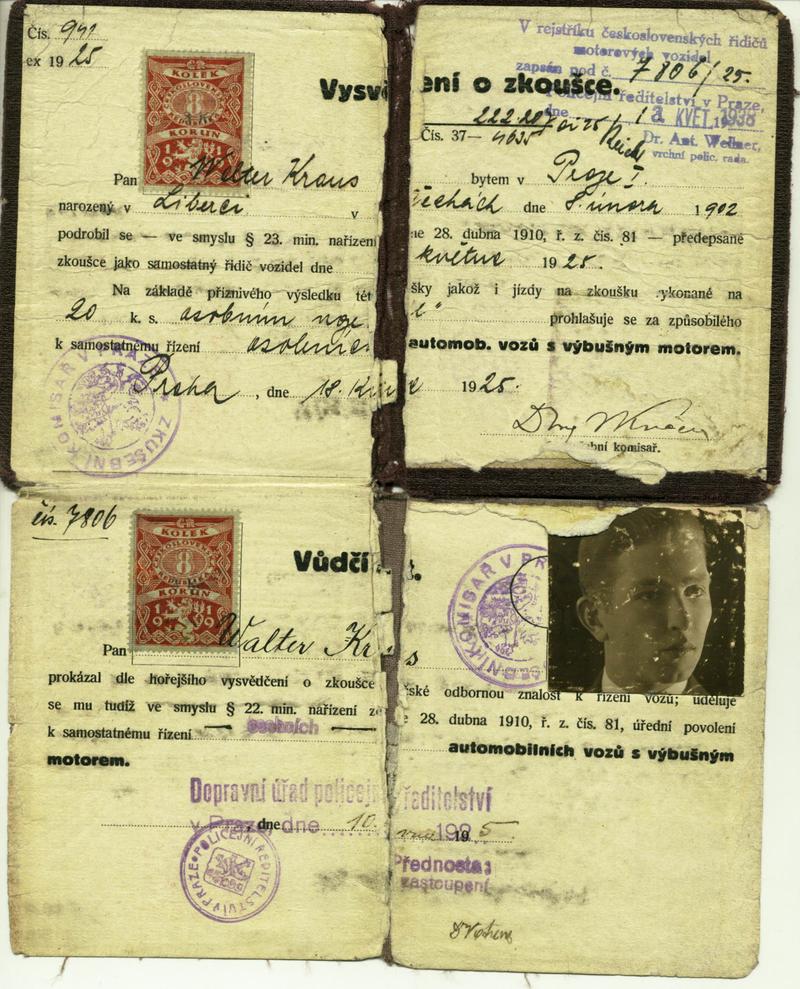 Čís. 941
ex 1925
KOLEK
ČESKOSLOVENSKÝ
8
KORUN
1919
Vysvě ení o zkoušce.
V rejstříku československých řidičů
motorových vozidel
zapsán pod č. 7806/25.
Policejní ředitelství v Praze,
dne 1 KVĚT. 1938
Dr. Ant. Wellner,
vrchní polic. rada.
Čís. 37—
Pan Walter Kraus bytem v Praze I.
narozený v Liberci v Čechách dne 8. února 1902
podrobil se — ve smyslu § 23. min. nařízení ne 28. dubna 1910, ř. z. čís. 81 — předepsané
zkoušce jako samostatný řidič vozidel dne květus 1925.
Na základě příznivého výsledku tét šky jakož i jízdy na zkoušku vykonané na
20 k. s. osobním prohlašuje se za způsobilého
k samostatnému řízení automob. vozů s výbušným motorem.
Praha, dne 18. 1925.
ZKUŠEBNÍ KOMISAŘ V PRAZE
bní komisař.
čís. 7806
KOLEK
ČESKOSLOVENSKÝ
8
KORUN
1919
Vůdčí
ZKUŠEBNÍ KOMISAŘ V PR
Pan Walter Kr s
prokázal dle hořejšího vysvědčení o zkoušce řské odbornou znalost k řízení vozů; uděluje
se mu tudíž ve smyslu § 22. min. nařízení ze 28. dubna 1910, ř. z. čís. 81, úřední povolení
k samostatnému řízení osobních automobilních vozů s výbušným
motorem.
Dopravní úřad policejn ředitelství
v Praze, dne 10. 1925.
POLICEJNÍ ŘEDITELSTVÍ V PRAZE
Přednosta:
zastoupení